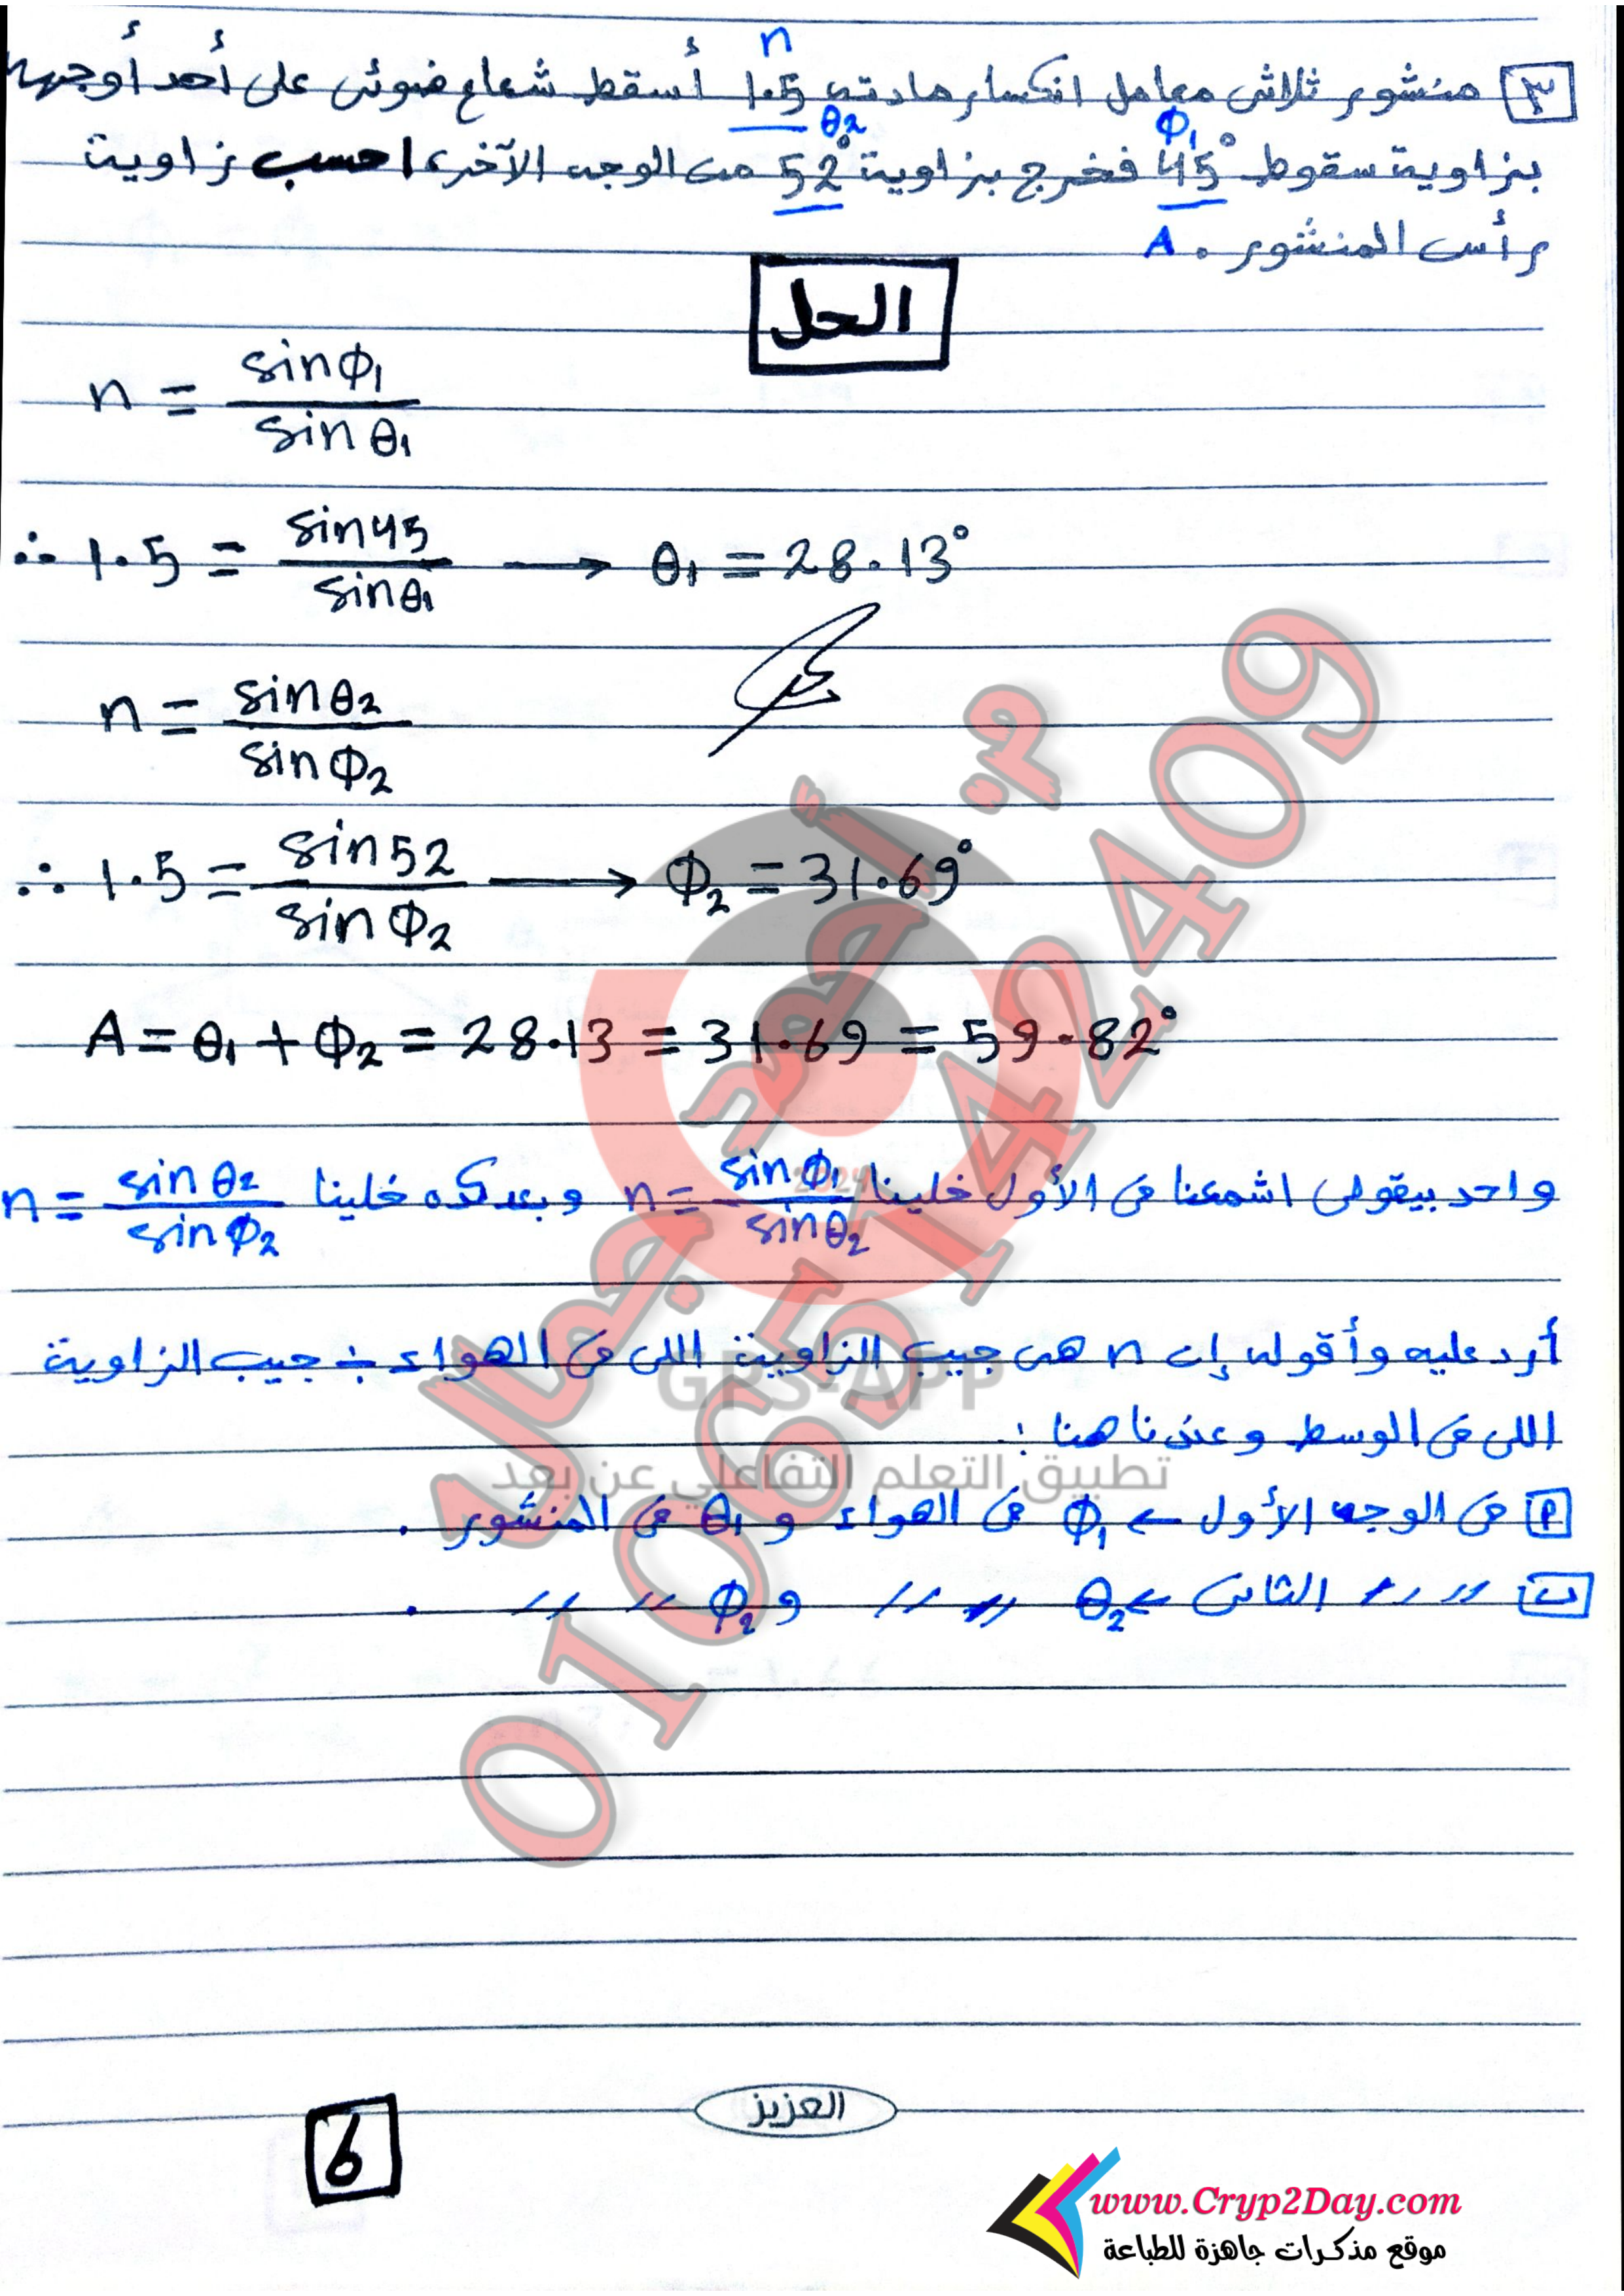 ٣ منشور ثلاثى معامل انكسار مادته 1.5 أسقط شعاع ضوئى على أحد أوجهه
n
بزاوية سقوط 45° فخرج بزاوية 52° من الوجه الآخر، احسب زاوية
Φ1 θ2
رأس المنشور. A
الحل
n = sinΦ1 / sinθ1
∴ 1.5 = sin45 / sinθ1 → θ1 = 28.13°
n = sinθ2 / sinΦ2
∴ 1.5 = sin52 / sinΦ2 → Φ2 = 31.69°
A = θ1 + Φ2 = 28.13 = 31.69 = 59.82°
واحد بيقولى اشمعنا فى الأول خلينا n = sinΦ1 / sinθ2 وبعد كده خلينا n = sinθ2 / sinΦ2
أرد عليه وأقوله إن n هى جيب الزاوية اللى فى الهواء ÷ جيب الزاوية
اللى فى الوسط وعندنا هنا :
أ فى الوجه الأول ← Φ1 فى الهواء و θ1 فى المنشور .
ب 〃 〃 الثانى ← θ2 〃 〃 و Φ2 〃 〃 .
م. أحمد جمال
01065142409
2024
GPS-APP
تطبيق التعلم التفاعلي عن بعد
العزيز
6
www.Cryp2Day.com
موقع مذكرات جاهزة للطباعة